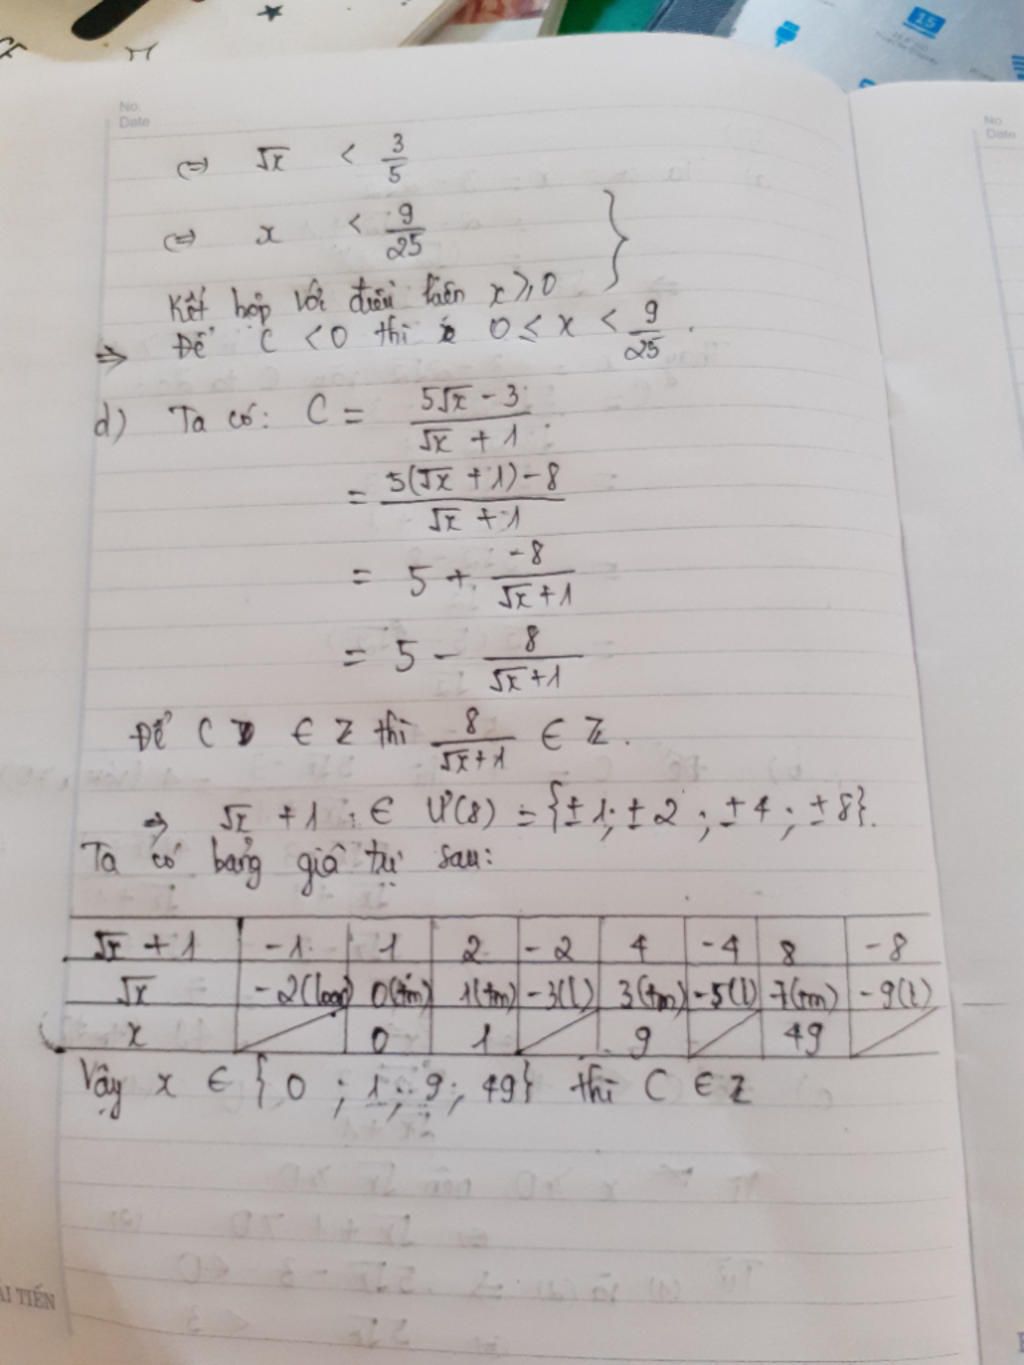 No.
Date
No.
Date
15
⇔ √x < 3/5
⇔ x < 9/25
Kết hợp với điều kiện x ≥ 0
⇒ Để C < 0 thì 0 ≤ x < 9/25 .
d) Ta có: C = (5√x - 3)/(√x + 1)
= (5(√x + 1) - 8)/(√x + 1)
= 5 + (-8)/(√x + 1)
= 5 - 8/(√x + 1)
Để C ∈ Z thì 8/(√x + 1) ∈ Z.
⇒ √x + 1 ∈ Ư(8) = {±1; ±2; ±4; ±8}.
Ta có bảng giá trị sau:
√x + 1 -1 1 2 -2 4 -4 8 -8
√x -2(loại) 0(tm) 1(tm) -3(l) 3(tm) -5(l) 7(tm) -9(l)
x 0 1 9 49
Vậy x ∈ {0; 1; 9; 49} thì C ∈ Z
ẢI TIẾN